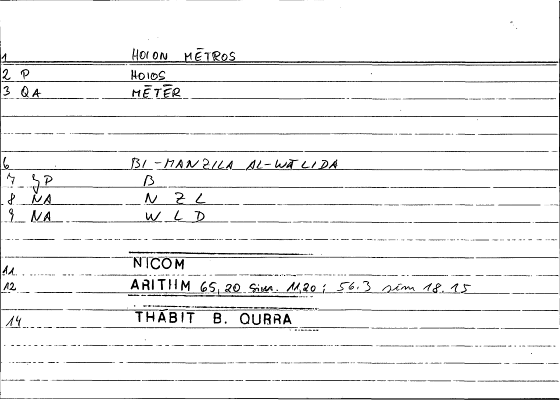 1 HOION MĒTROS
2 P HOIOS
3 QA MĒTĒR
6 BI-MANZILA AL-WĀLIDA
7 GP B
8 NA N Z L
9 NA W L D
11 NICOM
12 ARITHM 65,20 sim. 11,20; 56.3 sim 18.15
14 THABIT B. QURRA